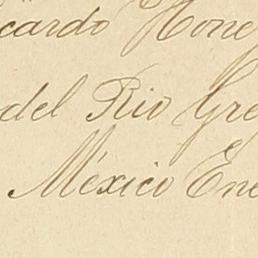 cardo Honey
del Rio Gre
México Ene